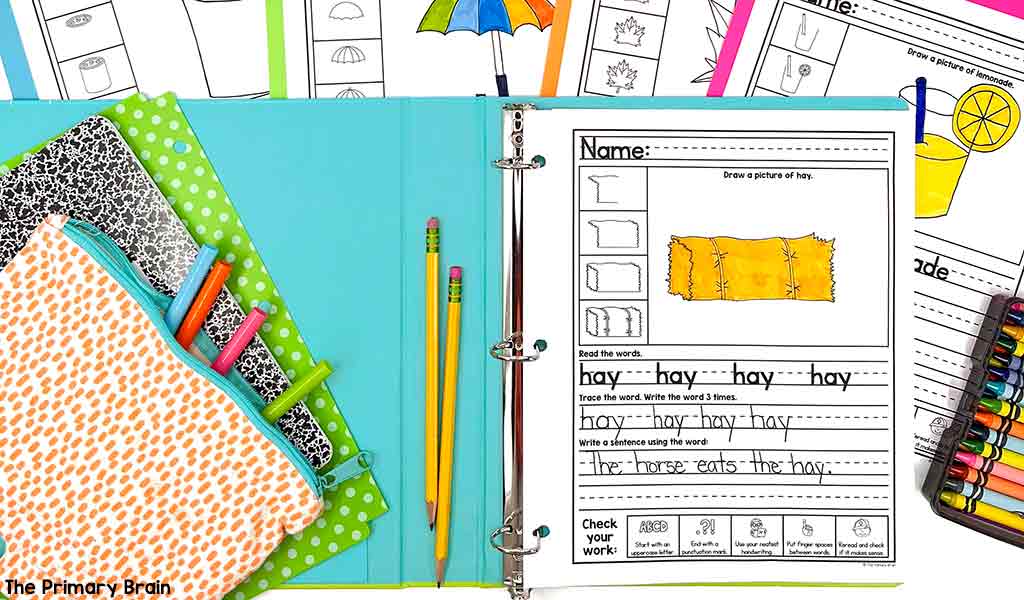 Name:
Draw a picture of lemonade.
Name:
Draw a picture of hay.
ade
Read the words.
hay hay hay hay
Trace the word. Write the word 3 times.
hay hay hay hay
Write a sentence using the word:
The horse eats the hay.
Check your work:
ABCD
Start with an uppercase letter.
.?!
End with a punctuation mark.
Use your neatest handwriting.
Put finger spaces between words.
Reread and check if it makes sense.
The Primary Brain